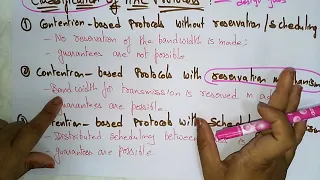 Classification of MAC Protocols :- design goals
① Contention-based Protocols without reservation/scheduling
- No reservation of the bandwidth is made.
- guarantees are not possible
② Contention-based Protocols with reservation mechanism
- Bandwidth for transmission is reserved in a
- Guarantees are possible.
Contention-based Protocols with sched
- Distributed scheduling between
- guarantees are possible.